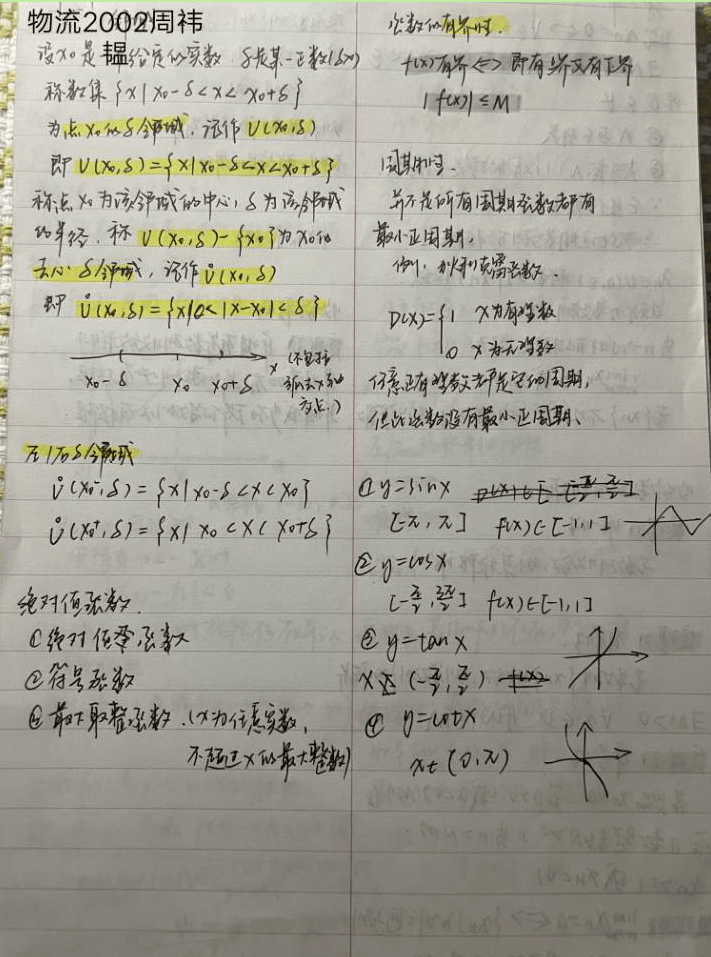 物流2002周祎
韫
设x₀是给定的实数，δ是某一正数(δ>0)
称数集{x|x₀-δ<x<x₀+δ}
为点x₀的δ邻域，记作U(x₀,δ)
即U(x₀,δ)={x|x₀-δ<x<x₀+δ}
称点x₀为该邻域的中心，δ为该邻域
的半径，称U(x₀,δ)-{x₀}为x₀的
去心δ邻域，记作Ů(x₀,δ)
即Ů(x₀,δ)={x|0<|x-x₀|<δ}
x₀-δ x₀ x₀+δ x
(不包括
交点。)
左/右δ邻域
Ů(x₀⁻,δ)={x|x₀-δ<x<x₀}
Ů(x₀⁺,δ)={x|x₀<x<x₀+δ}
绝对值函数.
①绝对值函数
②符号函数
③最大取整函数.(x为任意实数,
不超过x的最大整数)
函数的有界性.
f(x)有界<=>即有上界又有下界
|f(x)|≤M
周期性.
并不是所有周期函数都有
最小正周期,
例,狄利克雷函数.
D(x)={1 x为有理数
0 x为无理数
任意正有理数都是它的周期,
但此函数没有最小正周期、
①y=sinx
[-π,π] f(x)∈[-1,1]
②y=cosx
f(x)∈[-1,1]
③y=tanx
x∈(-π/2,π/2)
④y=cotx
x∈(0,π)